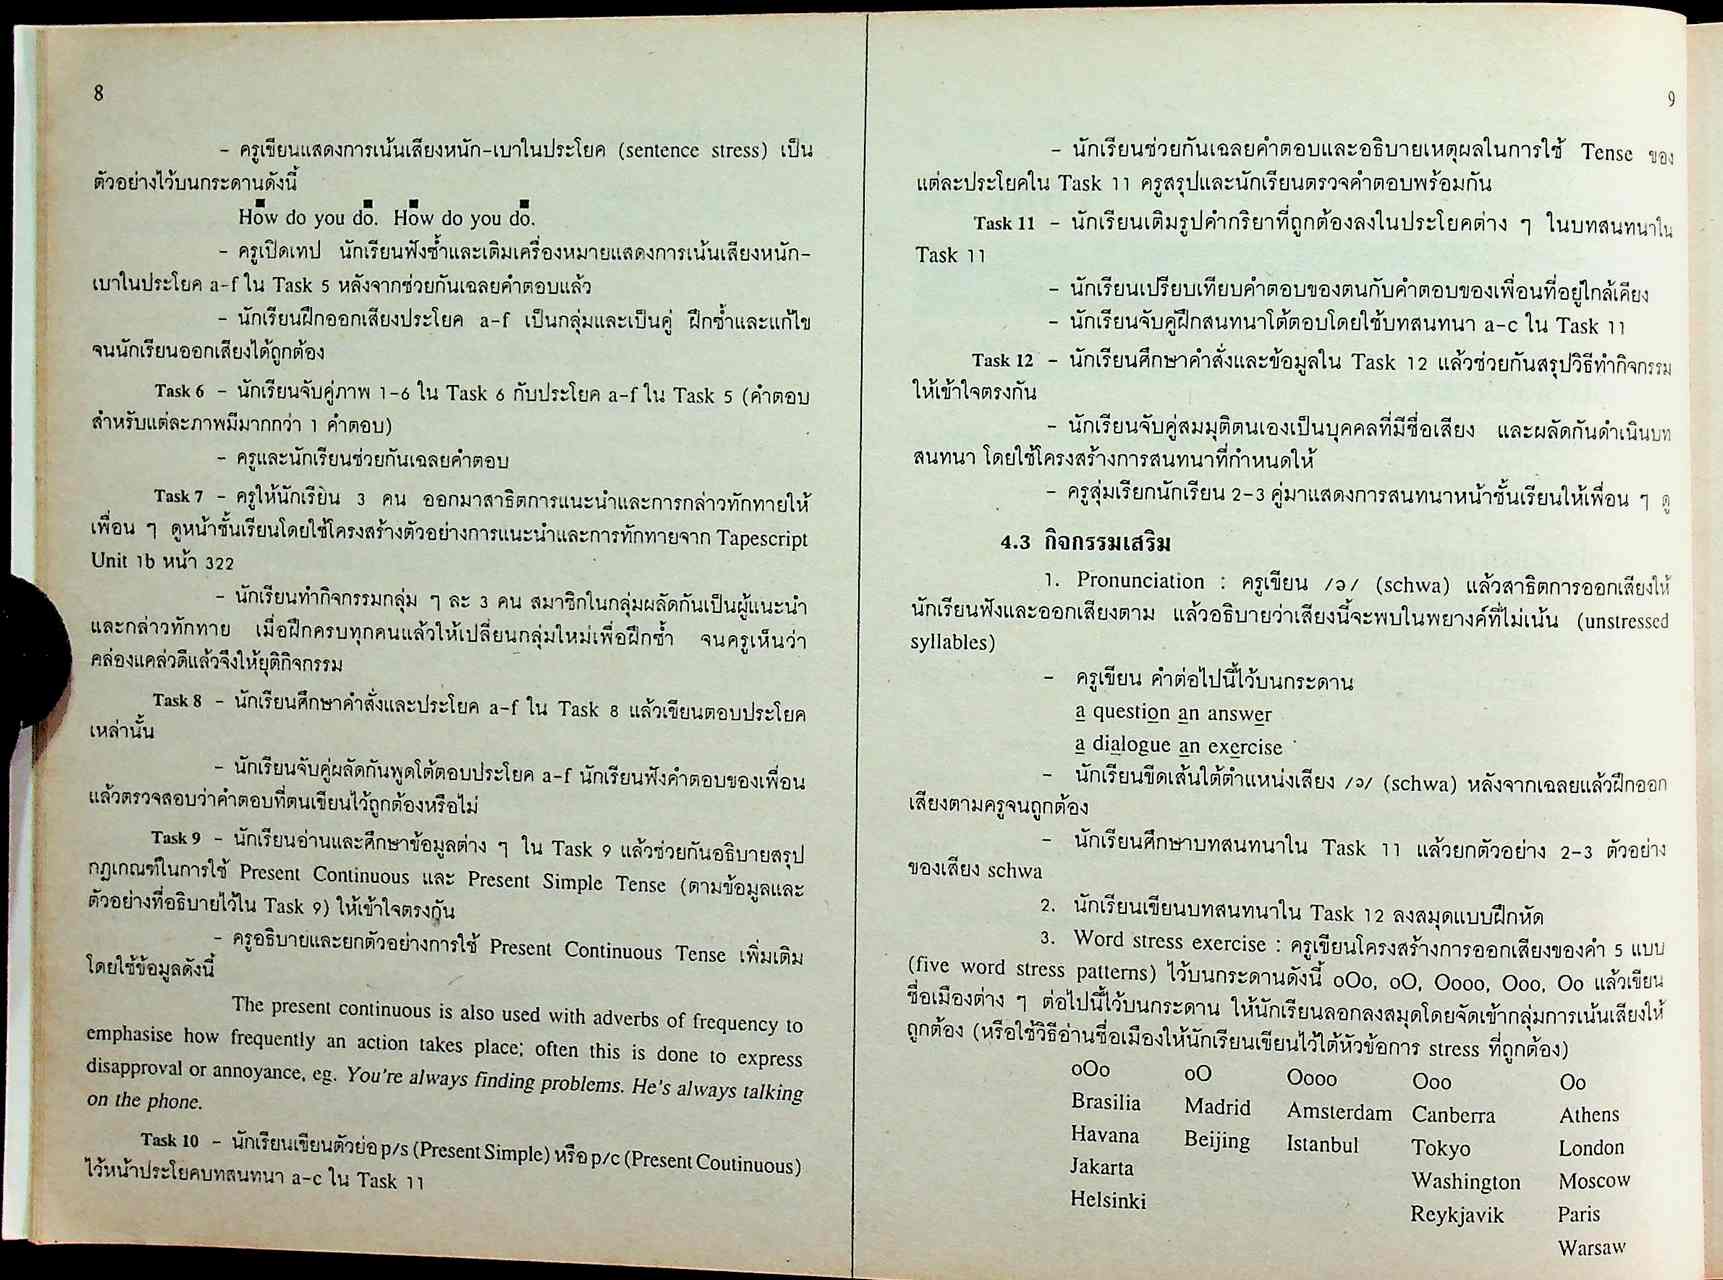 8
– ครูเขียนแสดงการเน้นเสียงหนัก-เบาในประโยค (sentence stress) เป็น
ตัวอย่างไว้บนกระดานดังนี้
How do you do. How do you do.
– ครูเปิดเทป นักเรียนฟังซ้ำและเติมเครื่องหมายแสดงการเน้นเสียงหนัก-
เบาในประโยค a-f ใน Task 5 หลังจากช่วยกันเฉลยคำตอบแล้ว
– นักเรียนฝึกออกเสียงประโยค a-f เป็นกลุ่มและเป็นคู่ ฝึกซ้ำและแก้ไข
จนนักเรียนออกเสียงได้ถูกต้อง
Task 6 – นักเรียนจับคู่ภาพ 1-6 ใน Task 6 กับประโยค a-f ใน Task 5 (คำตอบ
สำหรับแต่ละภาพมีมากกว่า 1 คำตอบ)
– ครูและนักเรียนช่วยกันเฉลยคำตอบ
Task 7 – ครูให้นักเรียน 3 คน ออกมาสาธิตการแนะนำและการกล่าวทักทายให้
เพื่อน ๆ ดูหน้าชั้นเรียนโดยใช้โครงสร้างตัวอย่างการแนะนำและการทักทายจาก Tapescript
Unit 1b หน้า 322
– นักเรียนทำกิจกรรมกลุ่ม ๆ ละ 3 คน สมาชิกในกลุ่มผลัดกันเป็นผู้แนะนำ
และกล่าวทักทาย เมื่อฝึกครบทุกคนแล้วให้เปลี่ยนกลุ่มใหม่เพื่อฝึกซ้ำ จนครูเห็นว่า
คล่องแคล่วดีแล้วจึงให้ยุติกิจกรรม
Task 8 – นักเรียนศึกษาคำสั่งและประโยค a-f ใน Task 8 แล้วเขียนตอบประโยค
เหล่านั้น
– นักเรียนจับคู่ผลัดกันพูดโต้ตอบประโยค a-f นักเรียนฟังคำตอบของเพื่อน
แล้วตรวจสอบว่าคำตอบที่ตนเขียนไว้ถูกต้องหรือไม่
Task 9 – นักเรียนอ่านและศึกษาข้อมูลต่าง ๆ ใน Task 9 แล้วช่วยกันอธิบายสรุป
กฎเกณฑ์ในการใช้ Present Continuous และ Present Simple Tense (ตามข้อมูลและ
ตัวอย่างที่อธิบายไว้ใน Task 9) ให้เข้าใจตรงกัน
– ครูอธิบายและยกตัวอย่างการใช้ Present Continuous Tense เพิ่มเติม
โดยใช้ข้อมูลดังนี้
The present continuous is also used with adverbs of frequency to
emphasise how frequently an action takes place; often this is done to express
disapproval or annoyance, eg. You're always finding problems. He's always talking
on the phone.
Task 10 – นักเรียนเขียนตัวย่อ p/s (Present Simple) หรือ p/c (Present Coutinuous)
ไว้หน้าประโยคบทสนทนา a-c ใน Task 11
9
– นักเรียนช่วยกันเฉลยคำตอบและอธิบายเหตุผลในการใช้ Tense ของ
แต่ละประโยคใน Task 11 ครูสรุปและนักเรียนตรวจคำตอบพร้อมกัน
Task 11 – นักเรียนเติมรูปคำกริยาที่ถูกต้องลงในประโยคต่าง ๆ ในบทสนทนาใน
Task 11
– นักเรียนเปรียบเทียบคำตอบของตนกับคำตอบของเพื่อนที่อยู่ใกล้เคียง
– นักเรียนจับคู่ฝึกสนทนาโต้ตอบโดยใช้บทสนทนา a-c ใน Task 11
Task 12 – นักเรียนศึกษาคำสั่งและข้อมูลใน Task 12 แล้วช่วยกันสรุปวิธีทำกิจกรรม
ให้เข้าใจตรงกัน
– นักเรียนจับคู่สมมุติตนเองเป็นบุคคลที่มีชื่อเสียง และผลัดกันดำเนินบท
สนทนา โดยใช้โครงสร้างการสนทนาที่กำหนดให้
– ครูสุ่มเรียกนักเรียน 2-3 คู่มาแสดงการสนทนาหน้าชั้นเรียนให้เพื่อน ๆ ดู
4.3 กิจกรรมเสริม
1. Pronunciation : ครูเขียน /ə/ (schwa) แล้วสาธิตการออกเสียงให้
นักเรียนฟังและออกเสียงตาม แล้วอธิบายว่าเสียงนี้จะพบในพยางค์ที่ไม่เน้น (unstressed
syllables)
– ครูเขียน คำต่อไปนี้ไว้บนกระดาน
a question an answer
a dialogue an exercise
– นักเรียนขีดเส้นใต้ตำแหน่งเสียง /ə/ (schwa) หลังจากเฉลยแล้วฝึกออก
เสียงตามครูจนถูกต้อง
– นักเรียนศึกษาบทสนทนาใน Task 11 แล้วยกตัวอย่าง 2-3 ตัวอย่าง
ของเสียง schwa
2. นักเรียนเขียนบทสนทนาใน Task 12 ลงสมุดแบบฝึกหัด
3. Word stress exercise : ครูเขียนโครงสร้างการออกเสียงของคำ 5 แบบ
(five word stress patterns) ไว้บนกระดานดังนี้ oOo, oO, Oooo, Ooo, Oo แล้วเขียน
ชื่อเมืองต่าง ๆ ต่อไปนี้ไว้บนกระดาน ให้นักเรียนลอกลงสมุดโดยจัดเข้ากลุ่มการเน้นเสียงให้
ถูกต้อง (หรือใช้วิธีอ่านชื่อเมืองให้นักเรียนเขียนไว้ใต้หัวข้อการ stress ที่ถูกต้อง)
oOo oO Oooo Ooo Oo
Brasilia Madrid Amsterdam Canberra Athens
Havana Beijing Istanbul Tokyo London
Jakarta Washington Moscow
Helsinki Reykjavik Paris
Warsaw